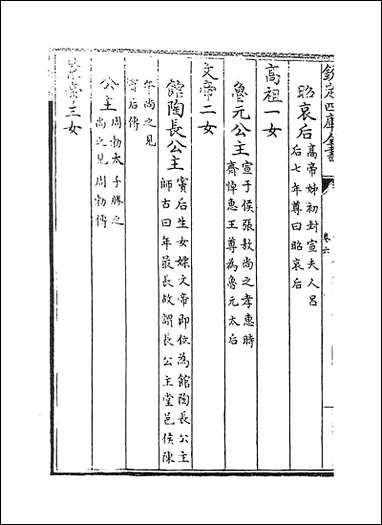 欽定四庫全書 卷六
昭哀后 高帝姊初封宣夫人呂
后七年尊曰昭哀后
高祖一女
魯元公主 宣平侯張敖尚之孝惠時
齊悼惠王尊為魯元太后
文帝二女
館陶長公主 竇后生女嫖文帝即位為館陶長公主
師古曰年最長故謂長公主堂邑侯陳
午尚之見
竇后傳
公主 周勃太子勝之
尚之見周勃傳
景帝三女